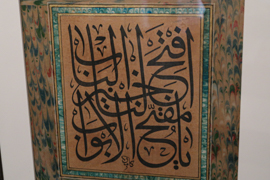 يا مفتح الابواب
افتح لنا خير الباب